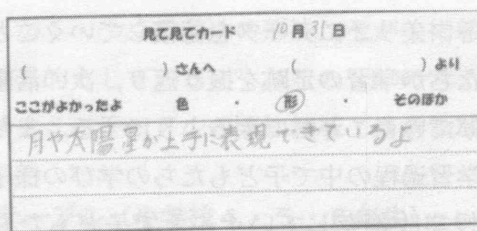 見て見てカード 10月31日
( )さんへ ( )より
ここがよかったよ 色 ・ 形 ・ そのほか
月や太陽星が上手に表現できているよ